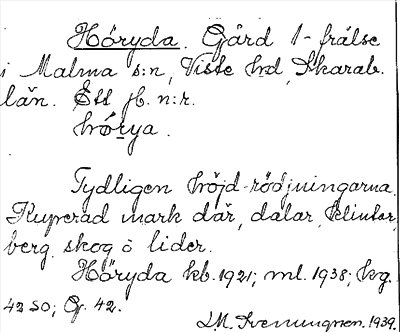 Höryda. Gård 1-frälse
i Malma s:n, Viste hd, Skarab.
län. Ett jb. n:r.
hö́rya.
Tydligen höjd-rödjningarna.
Kuperad mark där, dalar, klintar,
berg, skog o lider.
Höryda kb. 1921; ml. 1938; kg.
42 SO; Gg. 42.
1939.